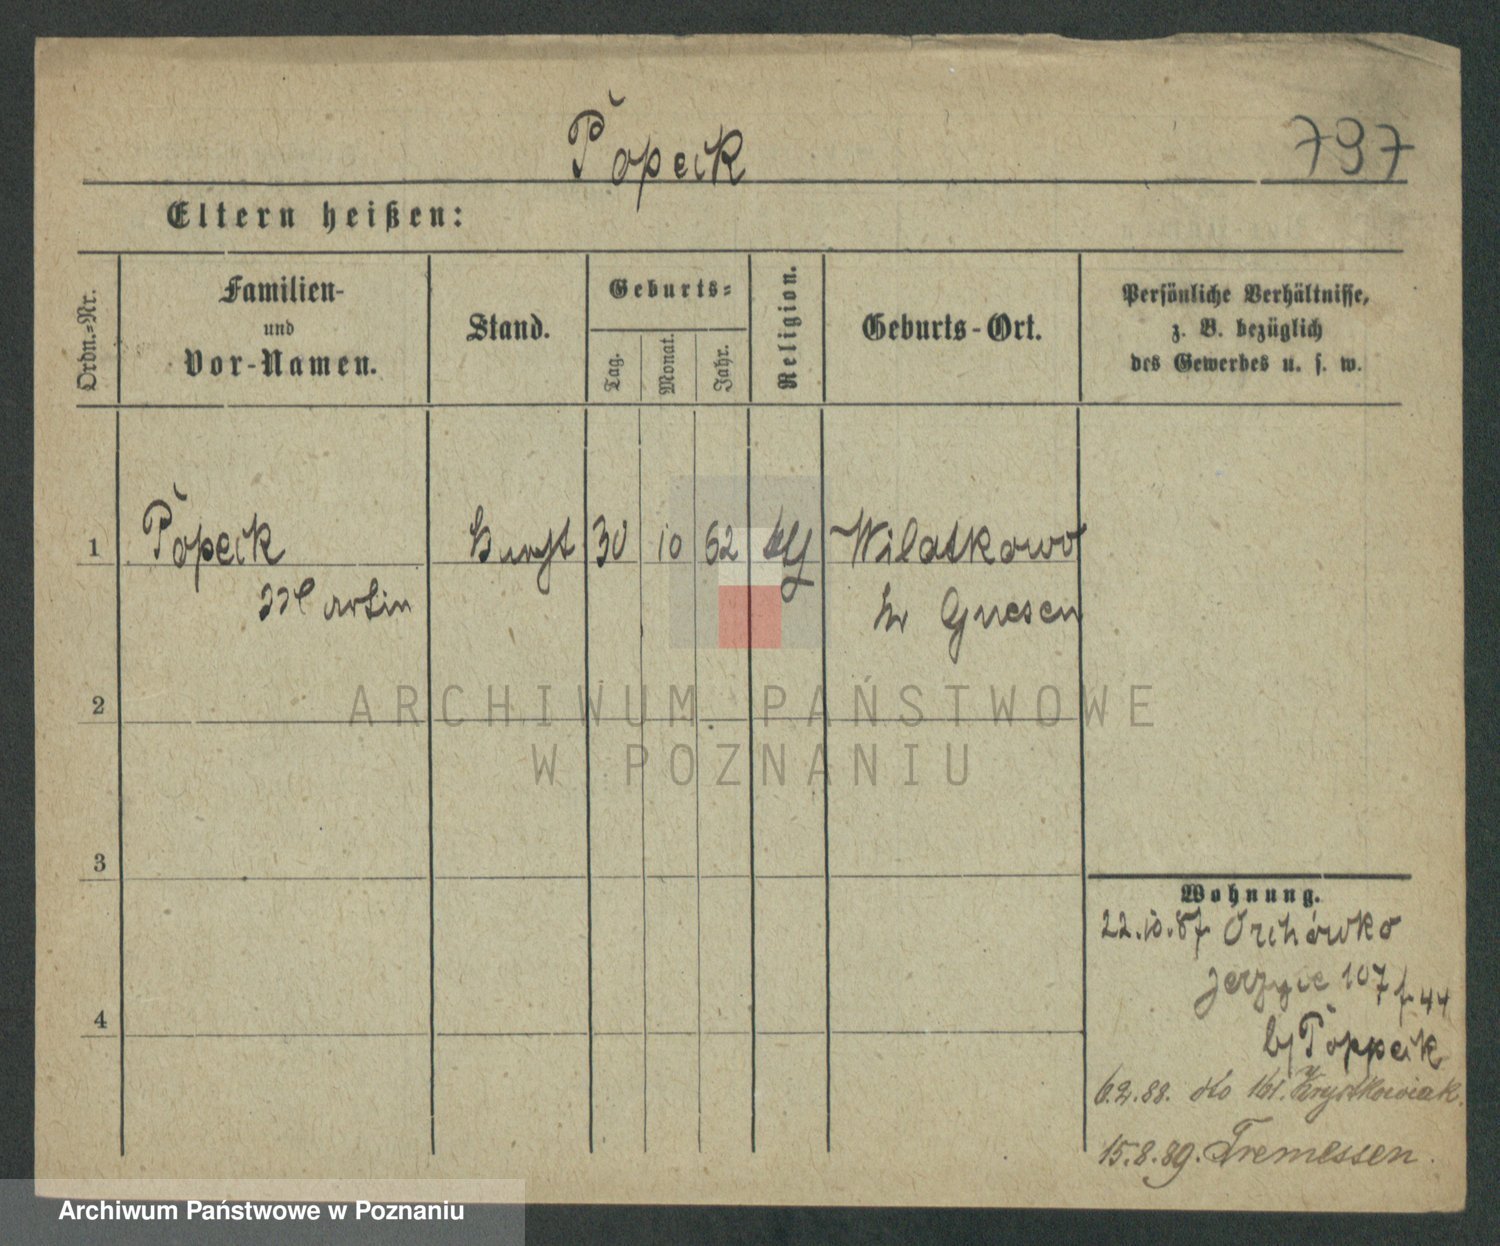 Popeck
797
Eltern heißen:
Ordn.=Nr.
Familien-
und
Vor-Namen.
Stand.
Geburts=
Tag.
Monat.
Jahr.
Religion.
Geburts-Ort.
Persönliche Verhältnisse,
z. B. bezüglich
des Gewerbes u. s. w.
1
Popeck
Martin
30
10
62
Wilatkowo
Gnesen
2
3
4
Wohnung.
22.10.87 Orchówko
Jerzyce 107 f. 44
b/ Poppeck
6.2.88. do 161. Krystkowiak.
15.8.89. Tremessen.
ARCHIWUM PAŃSTWOWE
W POZNANIU
Archiwum Państwowe w Poznaniu